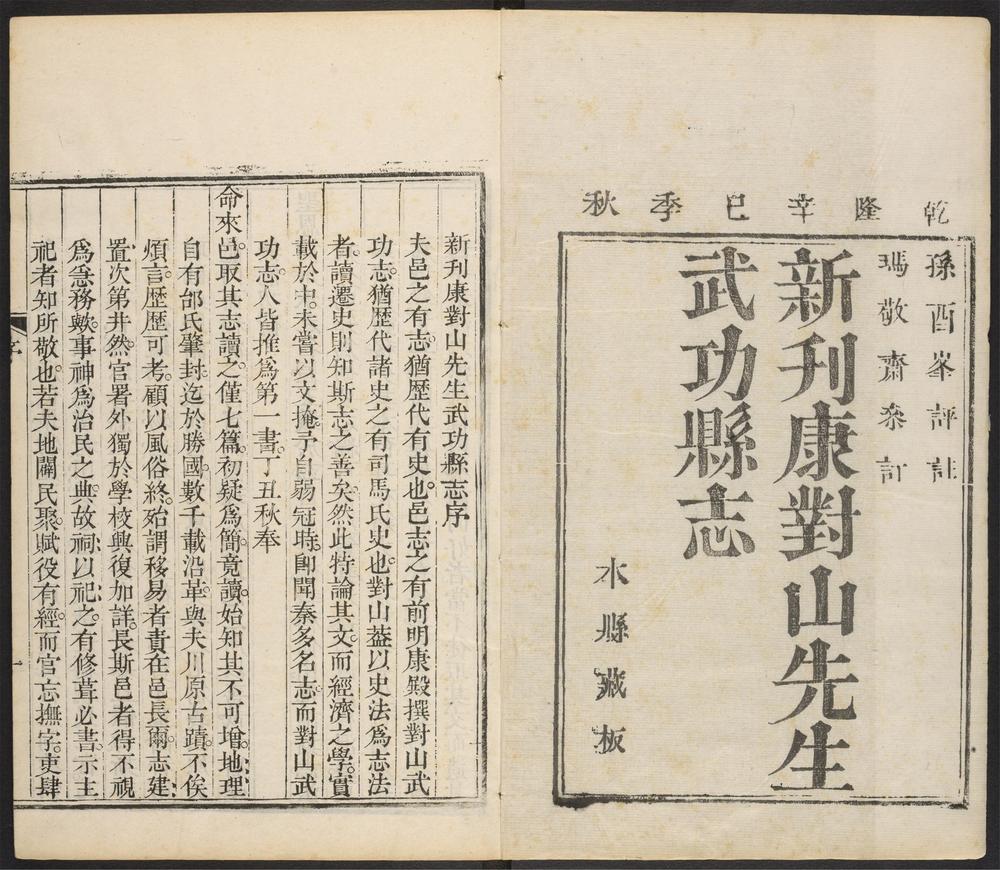 乾隆辛巳季秋
孫酉峯評註
瑪敬齋叅訂
新刊康對山先生
武功縣志
本縣藏板
新刊康對山先生武功縣志序
夫邑之有志。猶歷代有史也。邑志之有前明康殿撰對山武
功志。猶歷代諸史之有司馬氏史也。對山葢以史法爲志法
者。讀遷史則知斯志之善矣。然此特論其文。而經濟之學。實
載於中。未嘗以文掩。予自弱冠時。卽聞秦多名志。而對山武
功志。人皆推爲第一書。丁丑秋奉
命來邑。取其志讀之。僅七篇。初疑爲簡。竟讀。始知其不可增。地理
自有邰氏肇封。迄於勝國。數千載沿革。與夫川原古蹟。不俟
煩言。歷歷可考。顧以風俗終。殆謂移易者責在邑長爾。志建
置。次第井然。官署外獨於學校興復加詳。長斯邑者。得不視
爲急務歟。事神爲治民之典。故祠以祀之。有修葺必書。示主
祀者知所敬也。若夫地闢民聚。賦役有經。而官忘撫字。吏肆
序
一